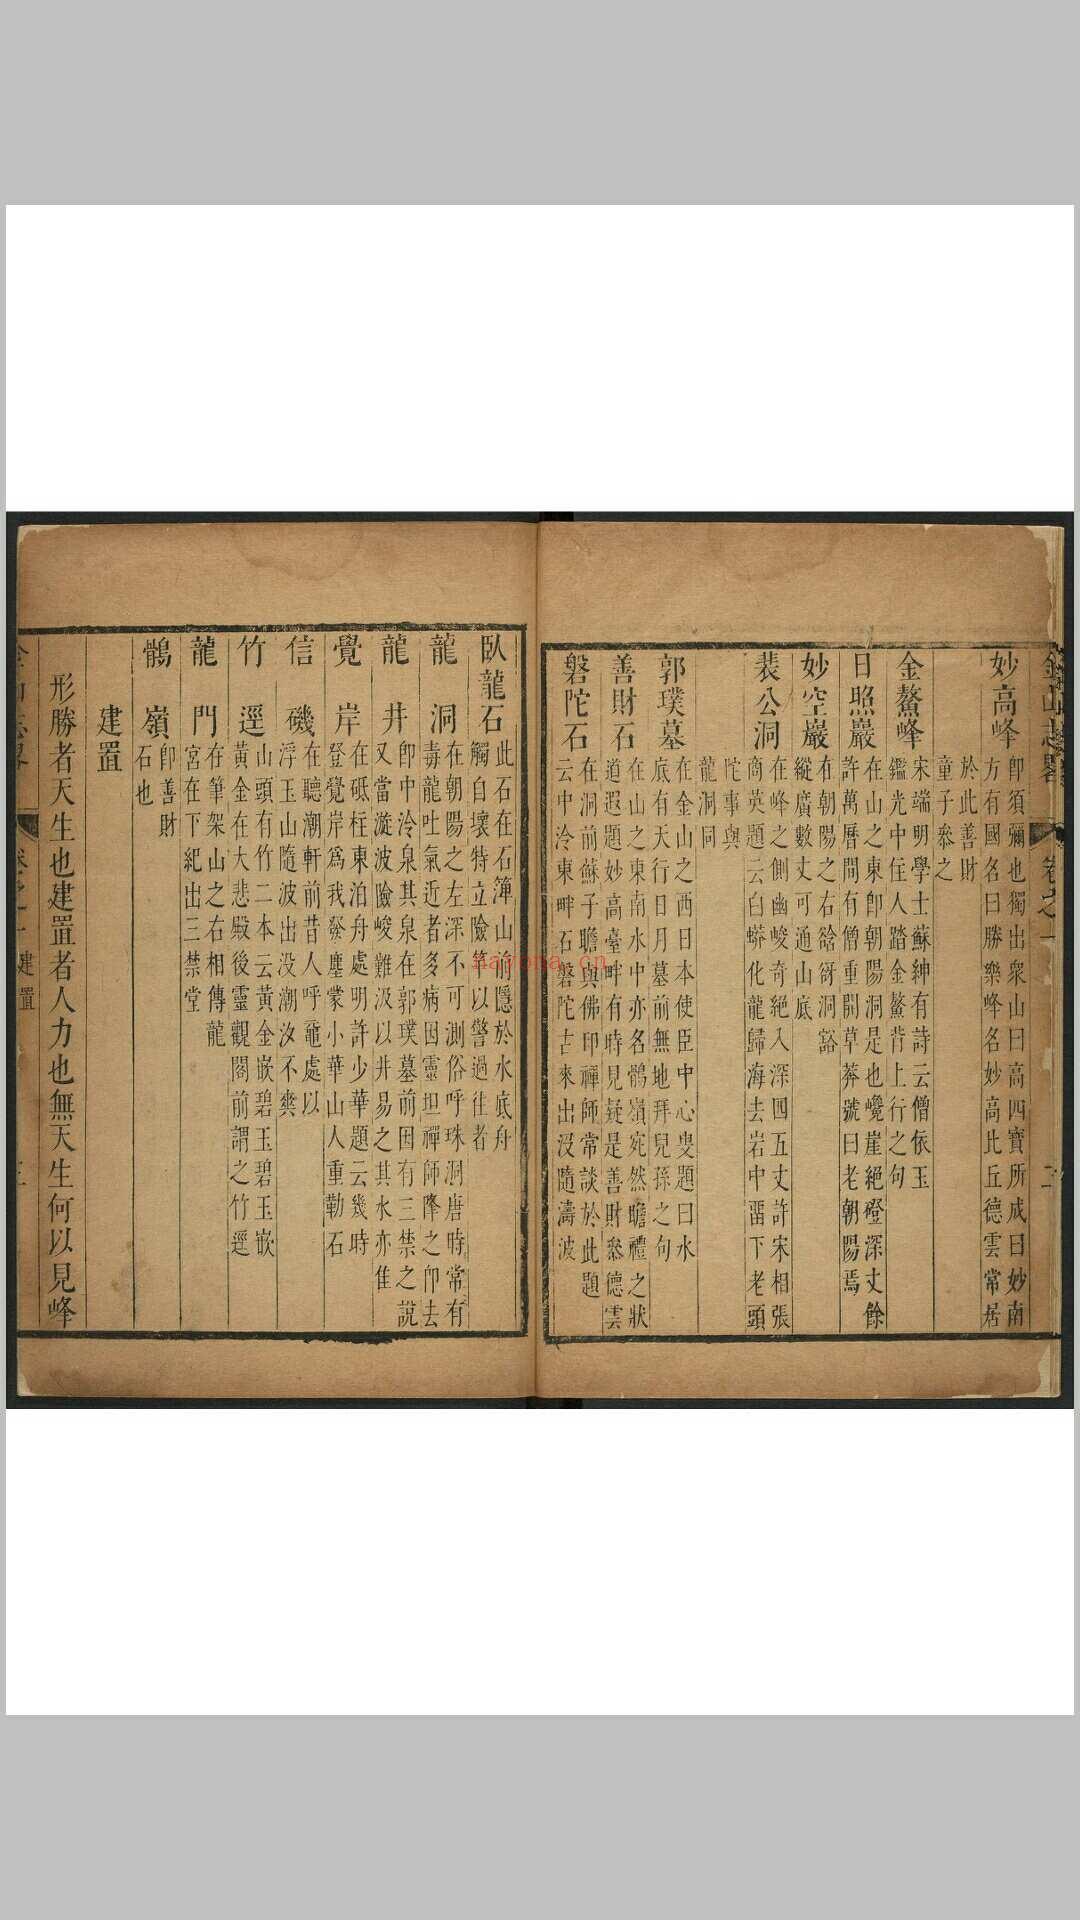 金山志畧
卷之一
二
妙高峰
卽須彌也獨出衆山曰高四寶所成曰妙南
方有國名曰勝樂峰名妙高比丘德雲常居
於此善財
童子叅之
金鰲峰
宋端明學士蘇紳有詩云僧依玉
鑑光中住人踏金鰲背上行之句
日照巖
在山之東卽朝陽洞是也巉崖絕磴深丈餘
許萬曆間有僧重闢草莽號曰老朝陽焉
妙空巖
在朝陽之右谽谺洞豁
縱廣數丈可通山底
裴公洞
在峰之側幽峻奇絕入深四五丈許宋相張
商英題云白蟒化龍歸海去岩中畱下老頭
陀事與
龍洞同
郭璞墓
在金山之西日本使臣中心叟題曰水
底有天行日月墓前無地拜兒孫之句
善財石
在山之東南水中亦名鶻嶺宛然瞻禮之狀
道遐題妙高臺畔有時見疑是善財叅德雲
磐陀石
在洞前蘇子瞻與佛印禪師常談於此題
云中泠東畔石磐陀古來出沒隨濤波
臥龍石
此石在石簰山前隱於水底舟
觸自壞特立險竿以警過往者
龍洞
在朝陽之左深不可測俗呼珠洞唐時常有
毒龍吐氣近者多病因靈坦禪師降之卽去
龍井
卽中泠泉其泉在郭璞墓前因有三禁之說
又當漩波險峻難汲以井易之其水亦佳
覺岸
在砥柱東泊舟處明許少華題云幾時
登覺岸爲我發塵蒙小華山人重勒石
信磯
在聽潮軒前昔人呼黿處以
浮玉山隨波出没潮汐不爽
竹逕
山頭有竹二本云黃金嵌碧玉碧玉嵌
黃金在大悲殿後靈觀閣前謂之竹逕
龍門
在筆架山之右相傳龍
宮在下紀出三禁堂
鶻嶺
卽善財
石也
建置
形勝者天生也建置者人力也無天生何以見峰
金山志畧
卷之一
建置
三
nayona.cn